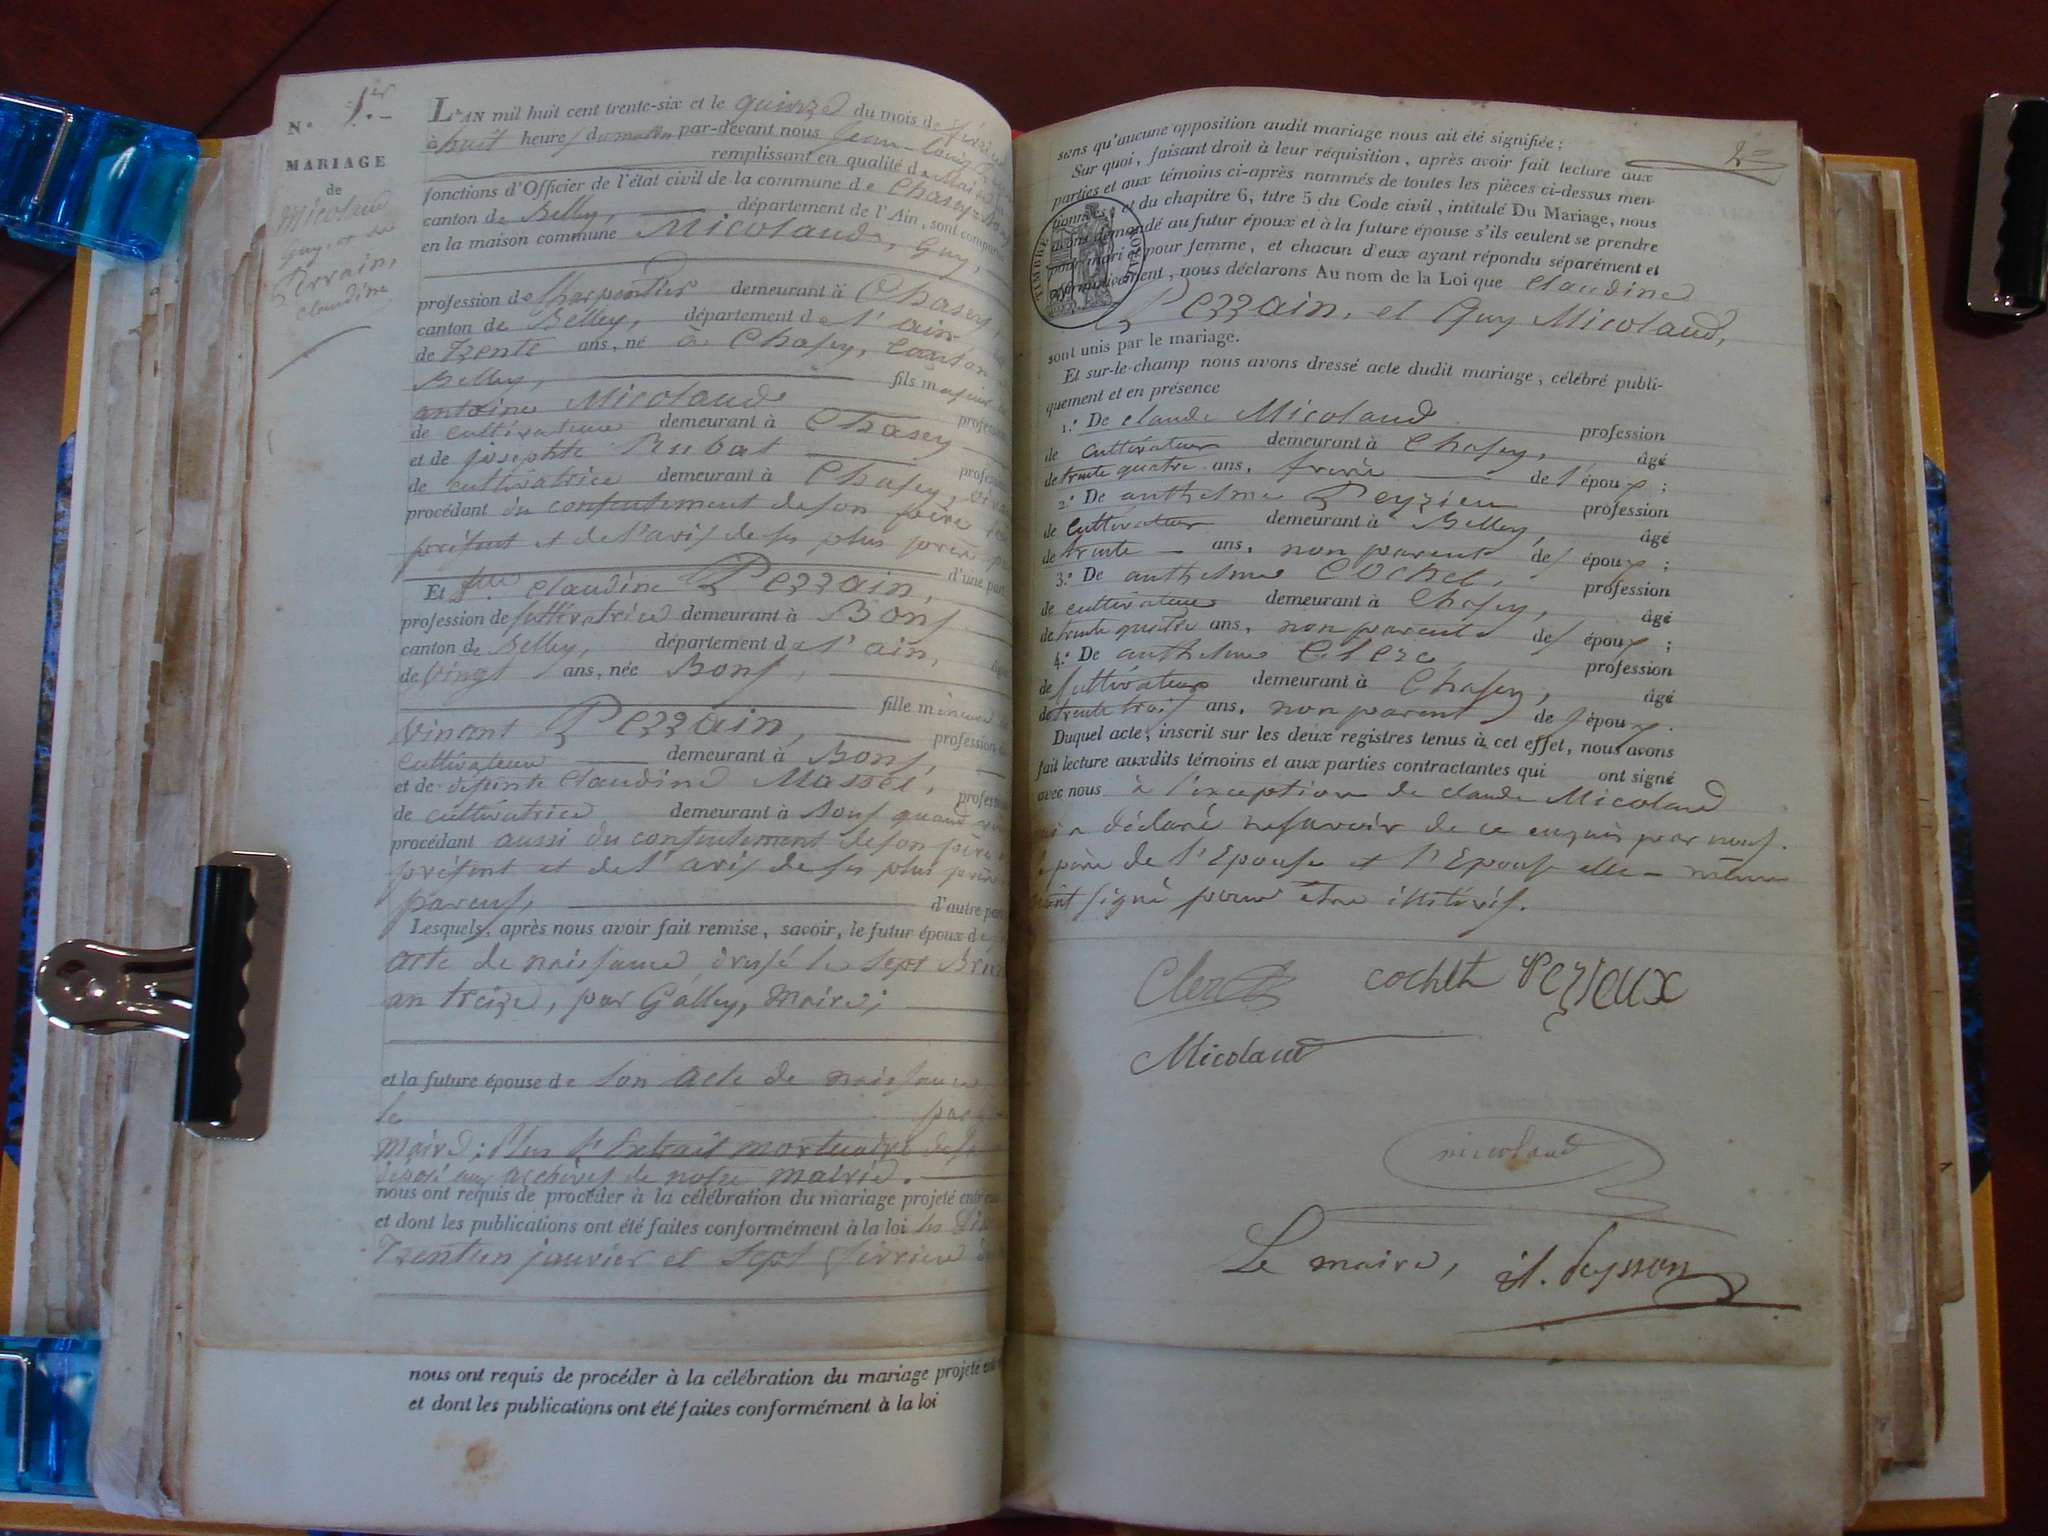 N.o 1.er
MARIAGE
de
Micolaud
Guy, et de
Perrain,
claudine
L'AN mil huit cent trente-six et le quinze du mois de février
à huit heures du matin par-devant nous Jean-Louis
remplissant en qualité de Maire
fonctions d'Officier de l'état civil de la commune de Chasey-
canton de Belley, département de l'Ain, sont
en la maison commune Micolaud, Guy,
profession de Charpentier demeurant à Chasey,
canton de Belley, département de l'ain,
de Trente ans, né à Chasey, Canton
Belley, fils majeur
antoine Micolaud profession
de cultivateur demeurant à Chasey
et de josephte Rubat profession
de cultivatrice demeurant à Chasey,
procédant du consentement de son père
présent et de l'avis de ses plus
d'une part
Et claudine Perrain,
profession de cultivatrice demeurant à Bons
canton de Belley, département de l'ain,
de vingt ans, née Bons,
fille mineure
vinant Perrain, profession
Cultivateur demeurant à Bons,
et de défunte Claudine Massel, profession
de cultivatrice demeurant à Bons quand
procédant aussi du consentement de son père
présent et de l'avis de ses plus
parens, d'autre part
Lesquels, après nous avoir fait remise, savoir, le futur époux de
acte de naissance dressé le sept
an treize, par Galley, Maire;
et la future épouse de son acte de naissance
le par
Maire; Plus l'Extrait mortuaire de
déposé aux archives de notre mairie.
nous ont requis de procéder à la célébration du mariage projeté
et dont les publications ont été faites conformément à la loi les
Trentun janvier et Sept février
nous ont requis de procéder à la célébration du mariage projeté
et dont les publications ont été faites conformément à la loi
2
sans qu'aucune opposition audit mariage nous ait été signifiée;
Sur quoi, faisant droit à leur réquisition, après avoir fait lecture aux
parties et aux témoins ci-après nommés de toutes les pièces ci-dessus men-
tionnées, et du chapitre 6, titre 5 du Code civil, intitulé Du Mariage, nous
avons demandé au futur époux et à la future épouse s'ils veulent se prendre
pour mari et pour femme, et chacun d'eux ayant répondu séparément et
affirmativement, nous déclarons Au nom de la Loi que claudine
Perrain, et Guy Micolaud,
TIMBRE ROYAL
sont unis par le mariage.
Et sur-le-champ nous avons dressé acte dudit mariage, célébré publi-
quement et en présence
1.o De claude Micolaud profession
de Cultivateur demeurant à Chasey, âgé
de trente quatre ans, frère de l'époux;
2.o De anthelme Peyzieu profession
de Cultivateur demeurant à Belley, âgé
de trente ans, non parent des époux;
3.o De anthelme Cochet, profession
de cultivateur demeurant à Chasey, âgé
de trente quatre ans, non parent des époux;
4.o De anthelme Clerc profession
de Cultivateur demeurant à Chasey, âgé
de trente trois ans, non parent des époux.
Duquel acte, inscrit sur les deux registres tenus à cet effet, nous avons
fait lecture auxdits témoins et aux parties contractantes qui ont signé
avec nous à l'exception de claude Micolaud
qui a déclaré ne savoir de ce enquis par nous.
le père de l'Epouse et l'Epouse elle-même
n'ont signé pour être illitérés.
Clerc cochet Pezieux
Micolaud
micolaud
Le maire, Peysson